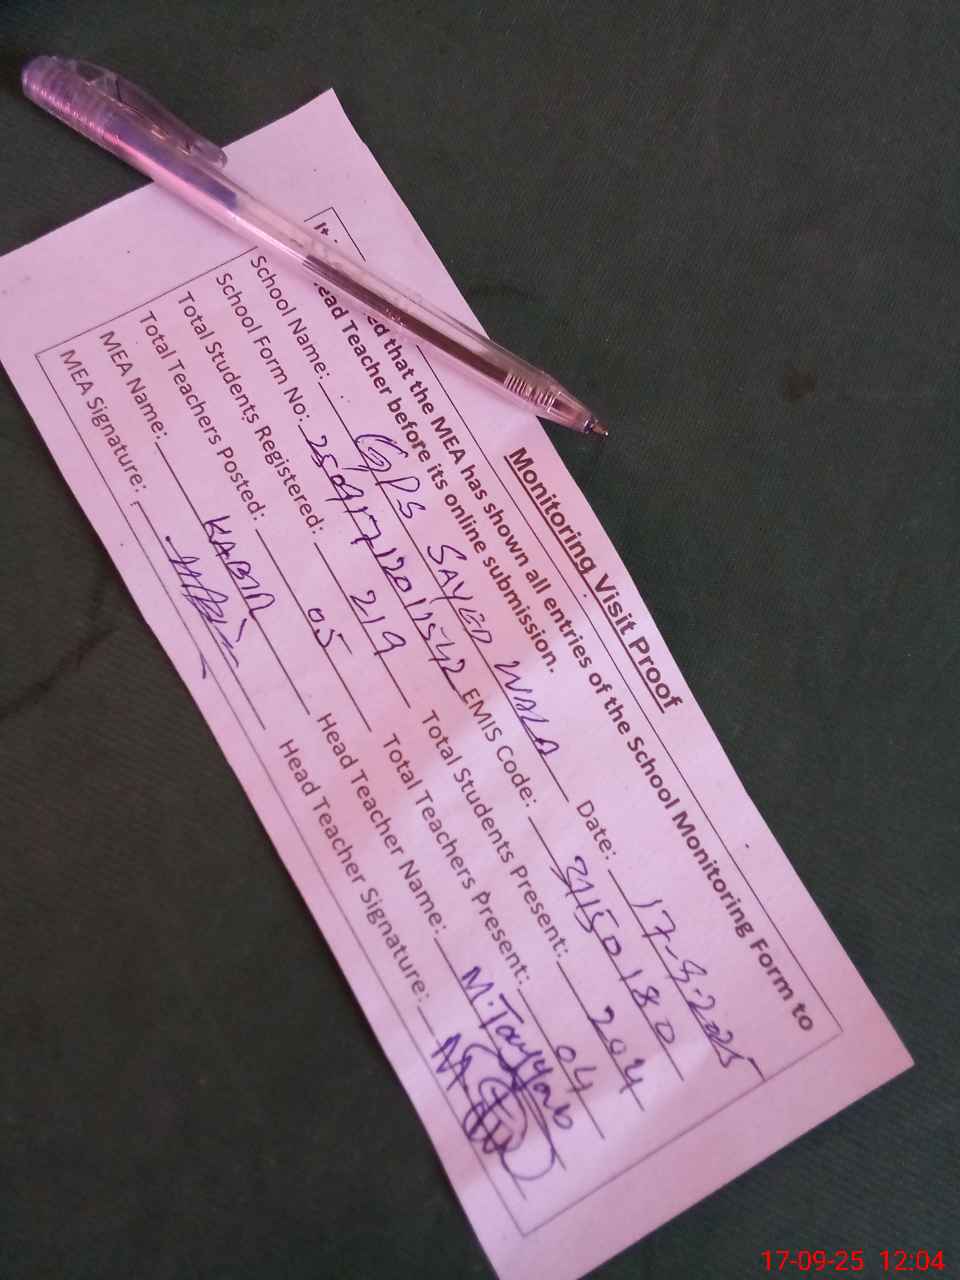 Monitoring Visit Proof
It ed that the MEA has shown all entries of the School Monitoring Form to
ead Teacher before its online submission.
School Name: GPS SAYED WALA Date: 17-9-2025
School Form No: EMIS Code: 31150180
Total Students Registered: 219 Total Students Present: 204
Total Teachers Posted: 05 Total Teachers Present: 04
MEA Name: KABIR Head Teacher Name: M. Tayyab
MEA Signature: Head Teacher Signature:
17-09-25 12:04